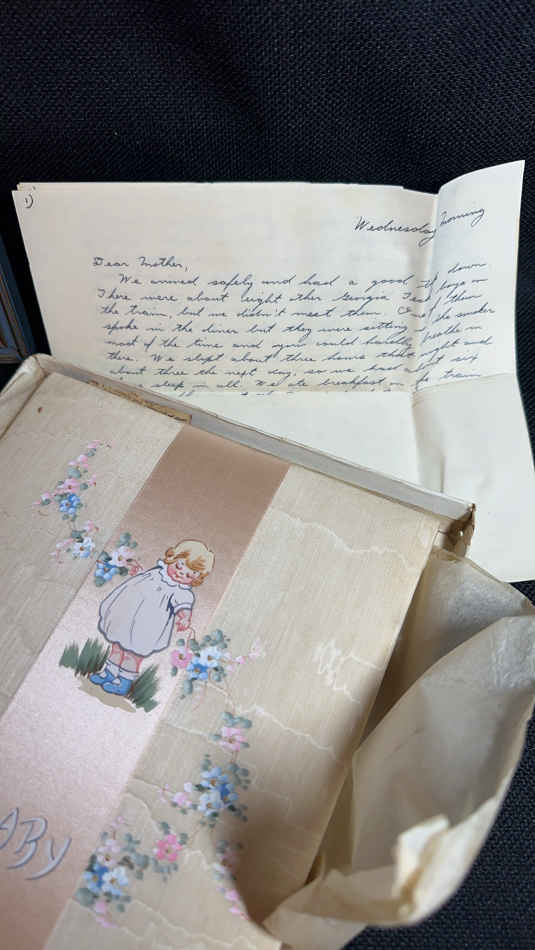 1)
Wednesday Morning
Dear Mother,
We arrived safely and had a good trip down.
There were about eight other Georgia Tech boys on
the train, but we didn't meet them. One of them
spoke in the diner but they were sitting the smoker
most of the time and you could hardly breathe in
there. We slept about three hours that night and
about three the next day, so we had about six
sleep in all. We ate breakfast on the train
BABY